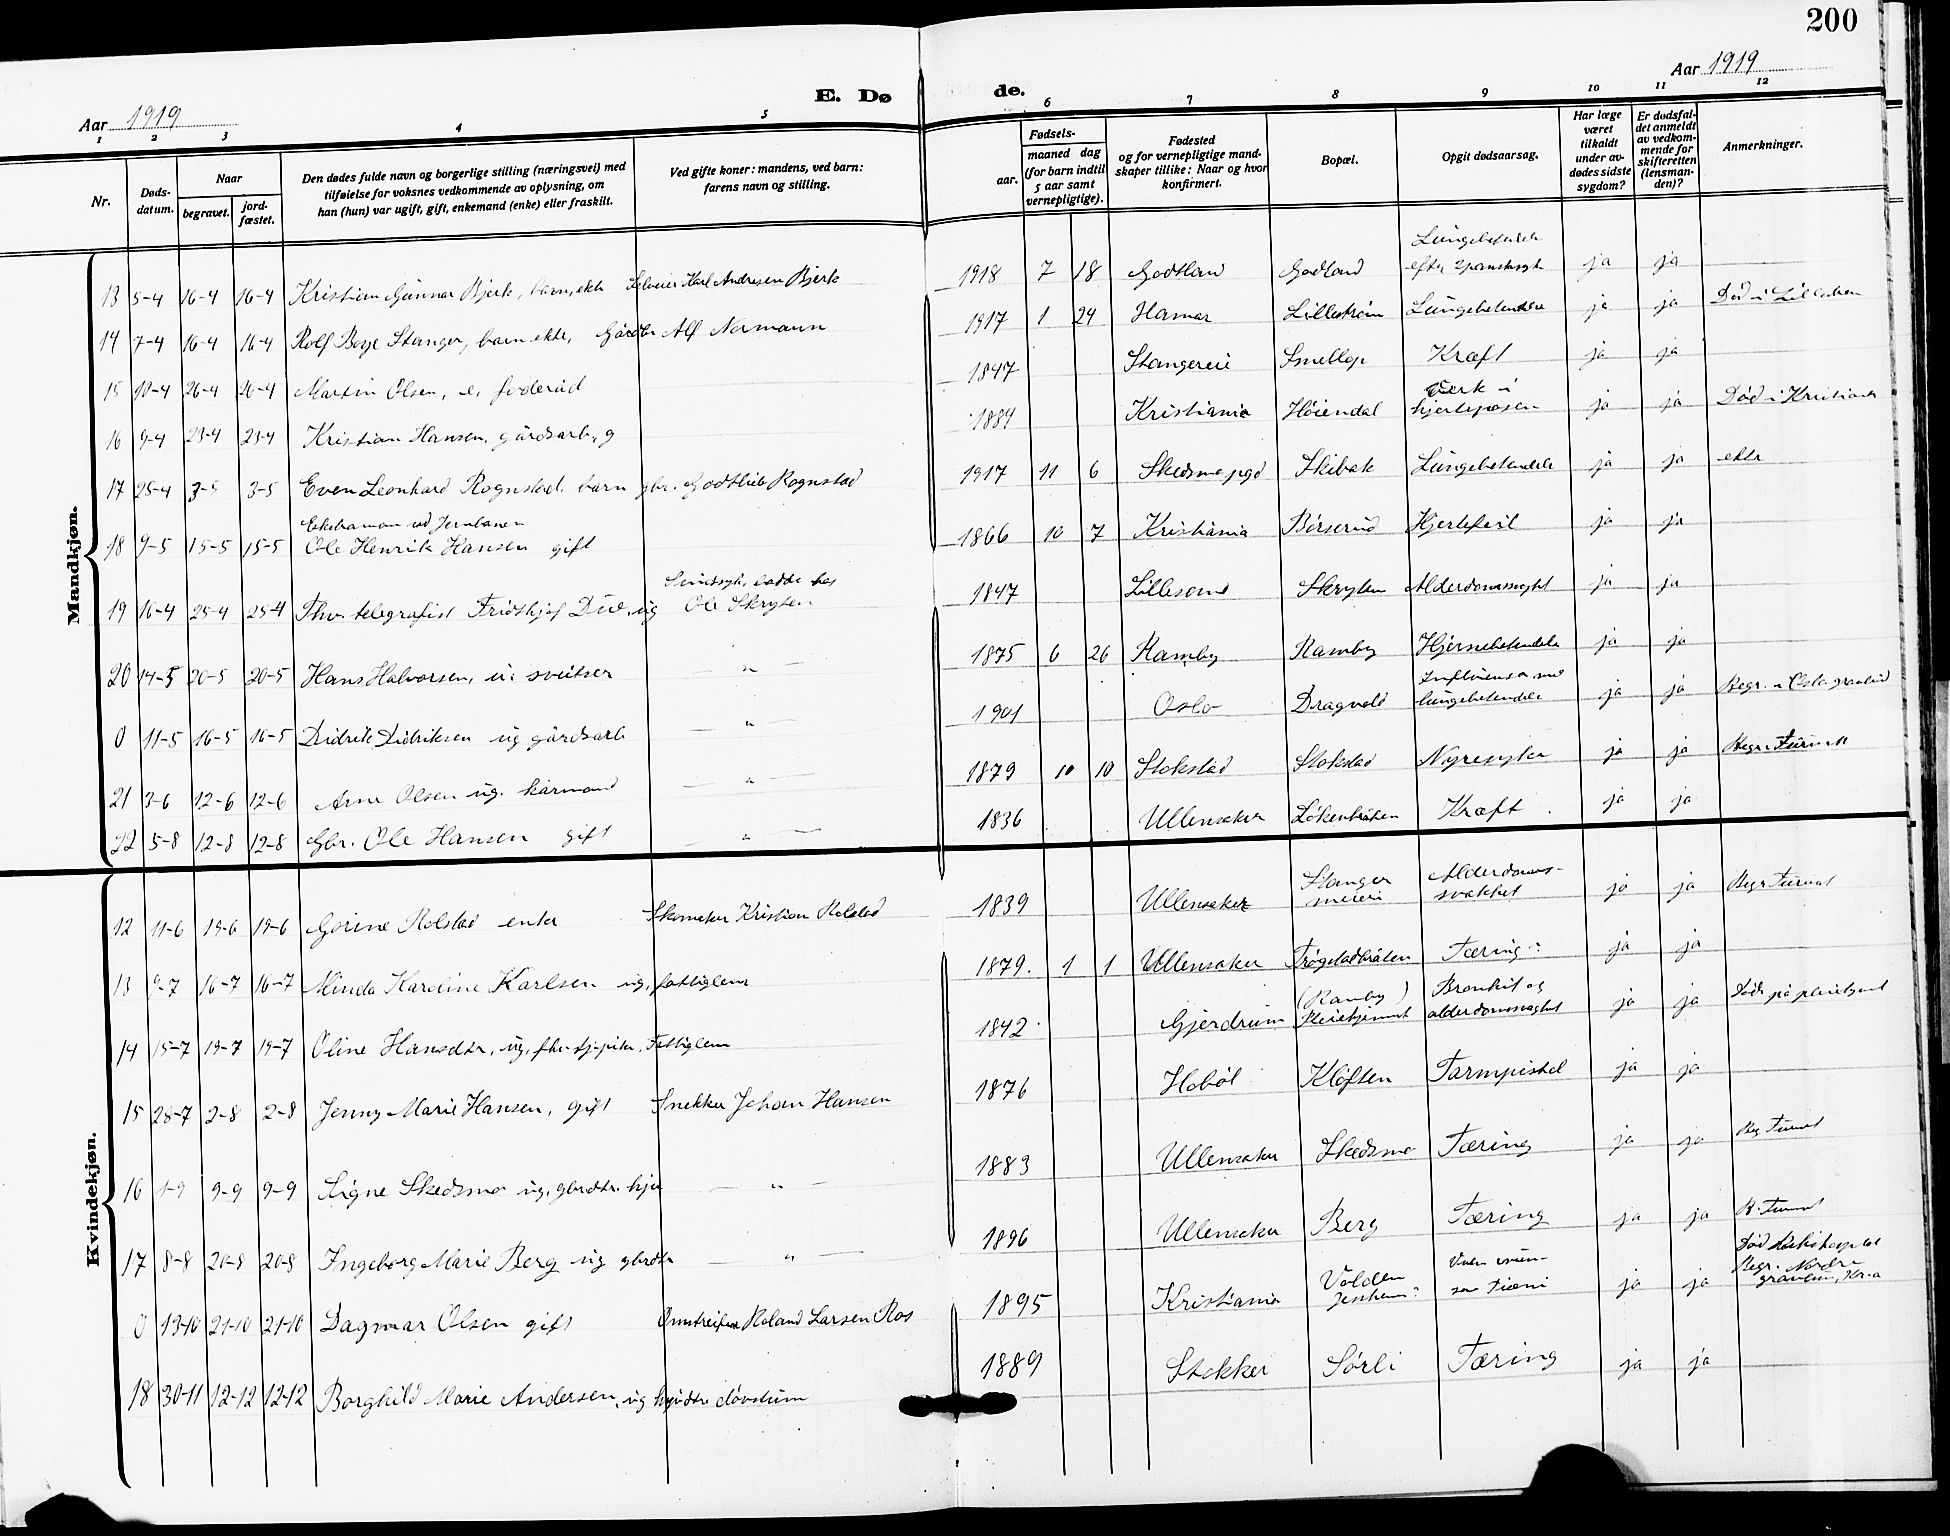 200
Aar 1919
Aar 1919
E. Dø
de.
1 2 3 4 5 6 7 8 9 10 11 12
Nr.
Døds-
datum.
Naar
begravet.
jord-
fæstet.
Den dødes fulde navn og borgerlige stilling (næringsvei) med
tilføielse for voksnes vedkommende av oplysning, om
han (hun) var ugift, gift, enkemand (enke) eller fraskilt.
Ved gifte koner: mandens, ved barn:
farens navn og stilling.
Fødsels-
aar.
maaned dag
(for barn indtil
5 aar samt
vernepligtige).
Fødested
og for vernepligtige mand-
skaper tillike: Naar og hvor
konfirmert.
Bopæl.
Opgit dødsaarsag.
Har læge
været
tilkaldt
under av-
dødes sidste
sygdom?
Er dødsfal-
det anmeldt
av vedkom-
mende for
skifteretten
(lensman-
den)?
Anmerkninger.
Mandkjøn.
13 5-4 16-4 16-4 Kristian Gunnar Bjerk, barn, ekte Karl Andresen Bjerk 1918 7 18 Godtland Godland Lungebetendelse efter spanskesyk ja ja
14 7-4 16-4 16-4 Rolf Boye Stanger, barn ekte, Alf Normann 1917 1 24 Hamar Lillestrøm Lungebetendelse ja ja Død i Lillestrøm
15 20-4 26-4 26-4 Martin Olsen, e, føderåd 1847 Stangereie Smellop Kræft ja ja
16 9-4 23-4 23-4 Kristian Hansen, gårdsarb, g 1884 Kristiania Høiendal Verk i hjerteposen ja ja Død i Kristiania
17 25-4 3-5 3-5 Even Leonhard Rognstad, barn gbr. Godtlieb Rognstad 1917 11 6 Skedsmo pgd Skibak Lungebetendelse ja ja ekte
18 9-5 15-5 15-5 ved Jernbanen Ole Henrik Hansen gift 1866 10 7 Kristiania Børserud Hjertefeil ja ja
19 16-4 25-4 25-4 Fhv. telegrafist Fridthjof Due, ug Sindssyk, hos Ole Skryten 1847 Lillesand Skryten Alderdomssvaghet ja ja
20 14-5 20-5 20-5 Hans Halvorsen, u. sveitser — " — 1875 6 26 Ramby Ramby Hjernebetendelse ja ja
0 11-5 16-5 16-5 Didrik Didriksen ug gårdsarb — " — 1901 Oslo Dragvold Influensa med lungebetendelse ja ja Begr. i Oslo gravlund
21 3-6 12-6 12-6 Arne Olsen ug. kårmand — " — 1879 10 10 Stokstad Stokstad Nyresyke ja ja Begr. Furuset
22 5-8 12-8 12-8 Gbr. Ole Hansen gift — " — 1836 Ullensaker Løkenbråten Kræft ja ja
Kvindekjøn.
12 11-6 19-6 19-6 Gorine Rolstad enke Skomaker Kristian Rolstad 1839 Ullensaker Stanger meieri Alderdoms- svakhet ja ja Begr Furuset
13 9-7 16-7 16-7 Minda Karoline Karlsen ug, fattiglem 1879. 1 1 Ullensaker Trøgstadbråten Tæring ja ja
14 15-7 19-7 19-7 Oline Hansdtr, ug, fhv tj-pike, Fattiglem 1842 Gjerdrum (Ramby) Pleiehjemmet Bronkit og alderdomssvaghet ja ja Døde på pleiehjemmet
15 28-7 2-8 2-8 Jenny Marie Hansen, gift Snekker Johan Hansen 1876 Hobøl Kløften Tarmfistel ja ja
16 9-9 9-9 Signe Skedsmo ug, gbrdtr. hje — " — 1883 Ullensaker Skedsmo Tæring ja ja Begr Furuset
17 8-8 20-8 20-8 Ingeborg Marie Berg ug gbrdtr — " — 1896 Ullensaker Berg Tæring ja ja B. Furuset
0 13-10 21-10 21-10 Dagmar Olsen gift Omstreifer Roland Larsen Ros 1895 Kristiania Volden Jessheim ja ja Død Begr. Nordre gravlund, Kr.a
18 30-11 12-12 12-12 Borghild Marie Andersen, ug døvstum 1889 Stokker Sørli Tæring ja ja